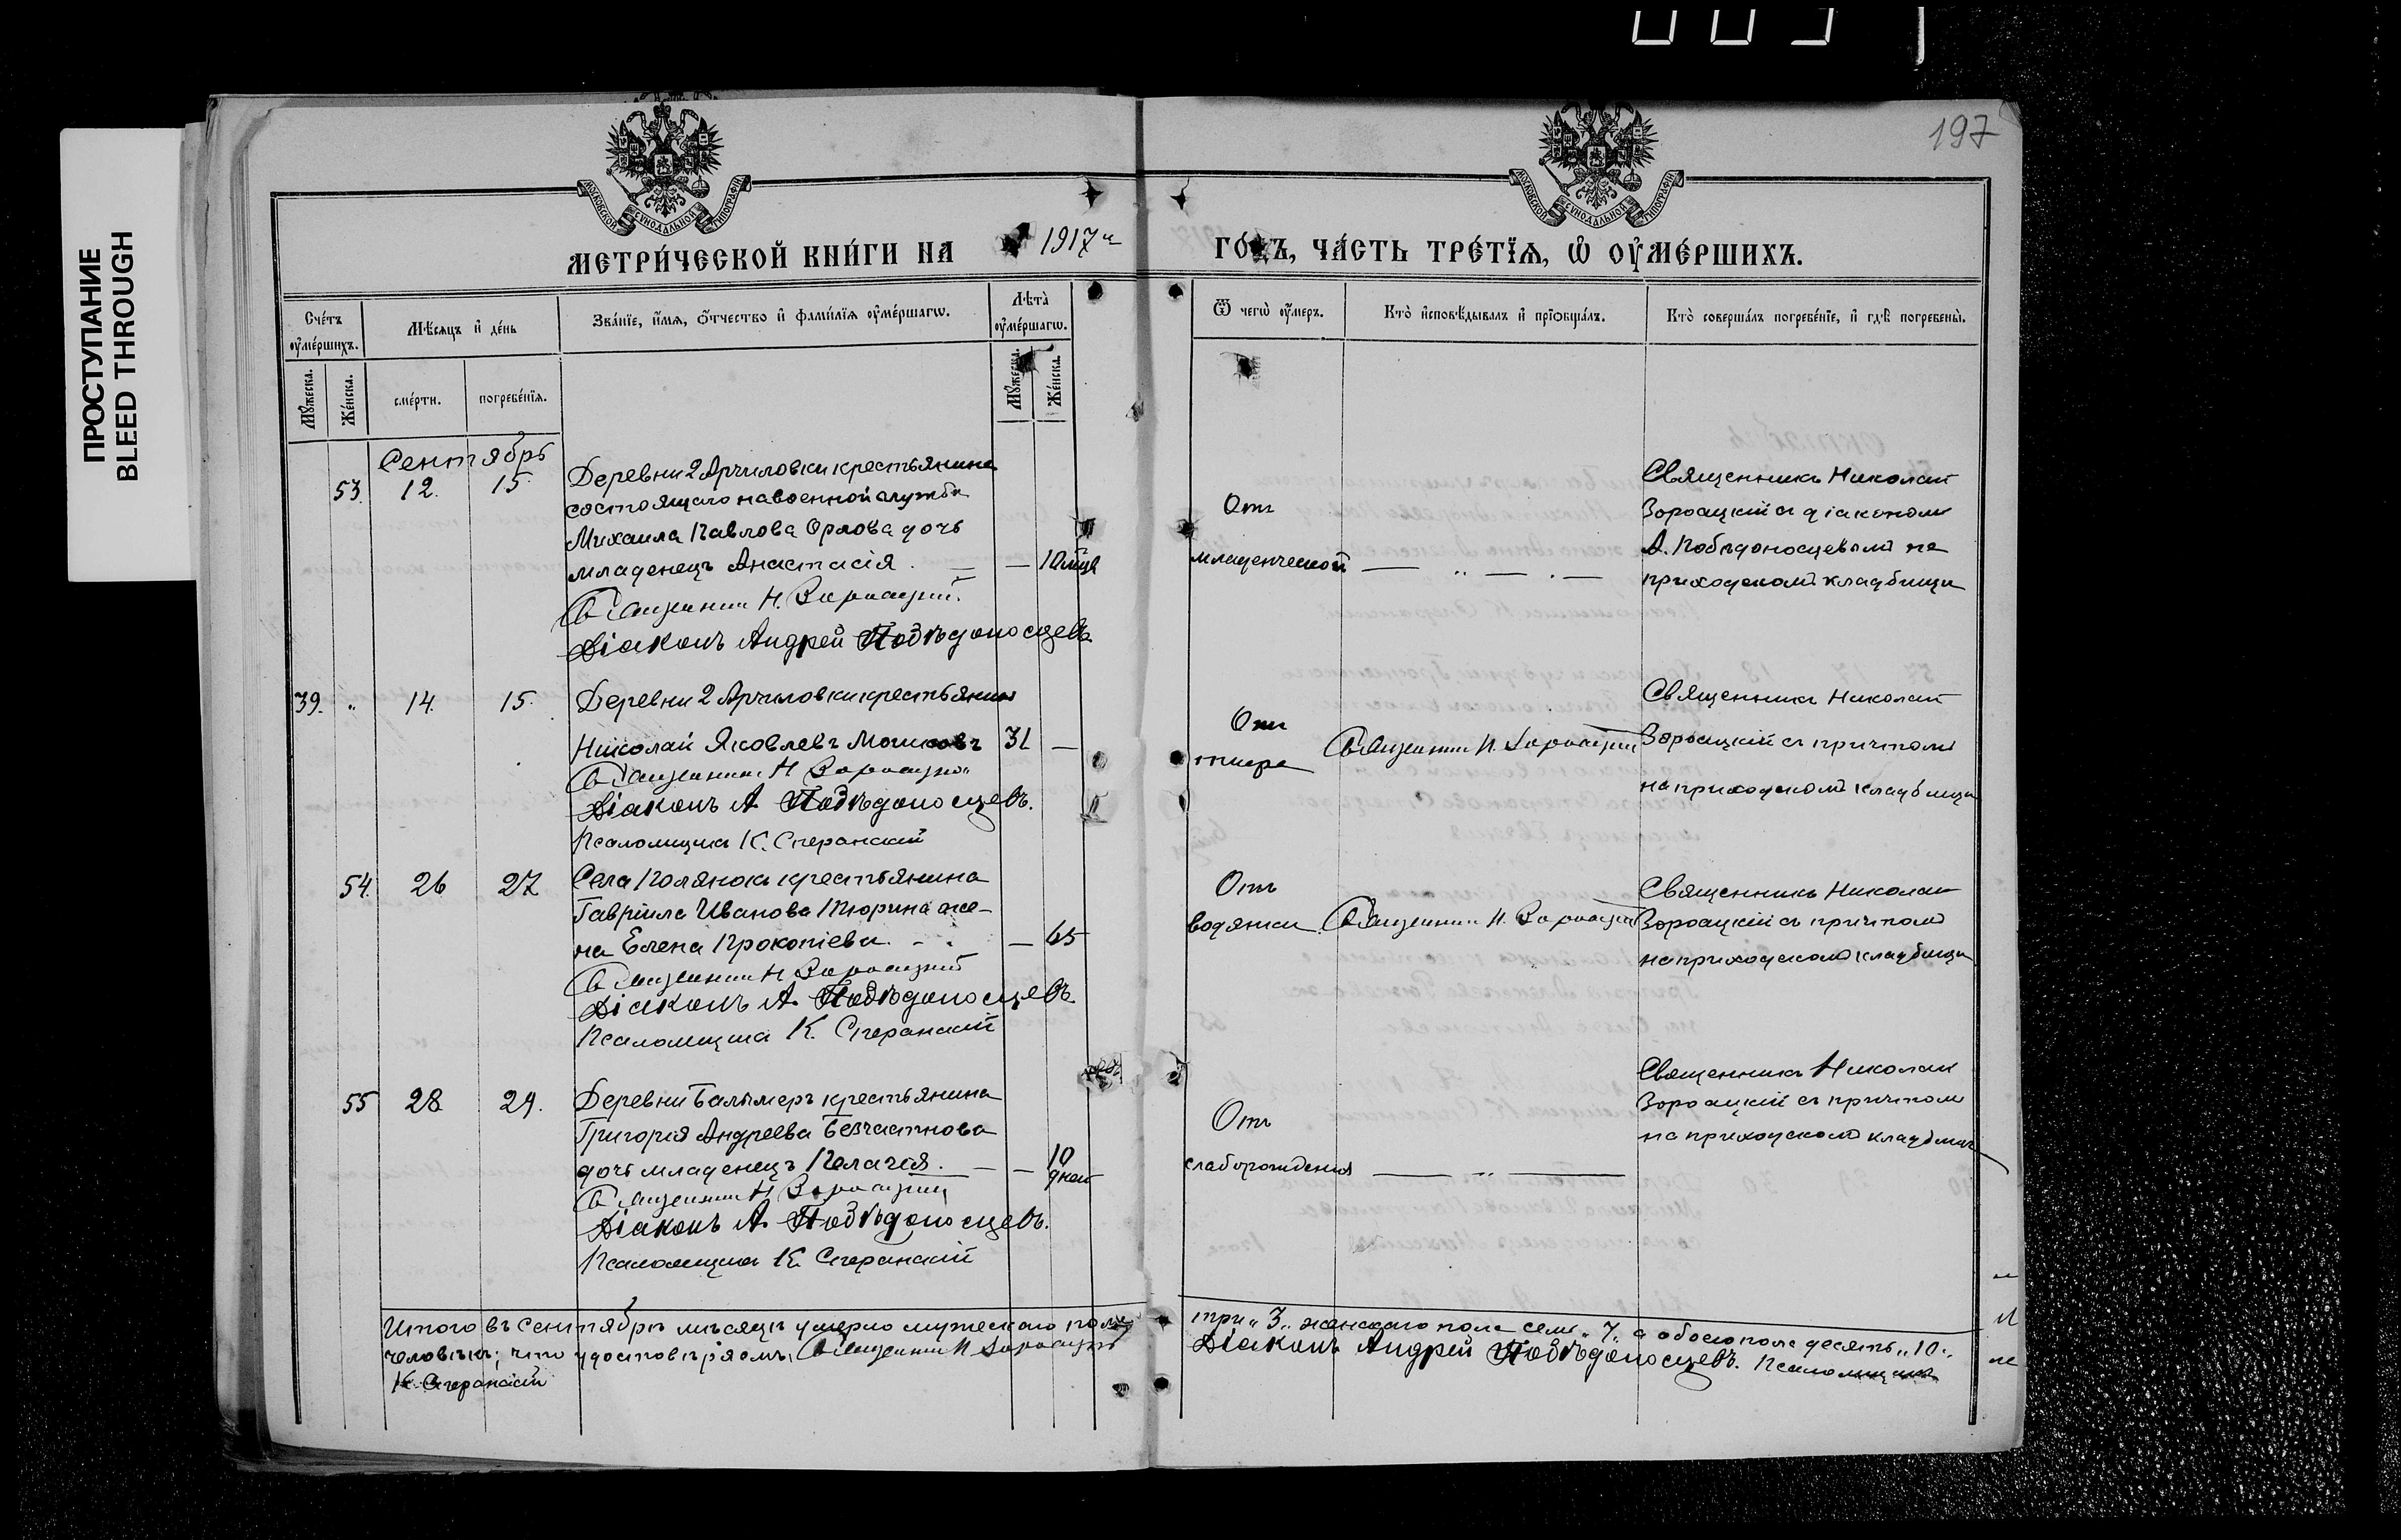 197
ПРОСТУПАНИЕ
BLEED THROUGH
МОСКОВСКОЙ СѴНОДАЛЬНОЙ ТИПОГРАФІИ
МОСКОВСКОЙ СѴНОДАЛЬНОЙ ТИПОГРАФІИ
МЕТРИ́ЧЕСКОЙ КНИ́ГИ НА 1917й ГО́ДЪ, ЧА́СТЬ ТРЕ́ТЇѦ, Ѡ҆ ОУ҆МЕ́РШИХЪ.
Сче́тъ оу҆ме́ршихъ.
Мѣ́сѧцъ и҆ де́нь
Зва́нїе, и҆́мѧ, ѻ҆́тчество и҆ фами́лїѧ оу҆ме́ршагѡ.
Лѣ́та оу҆ме́ршагѡ.
Ѿ чегѡ̀ оу҆́меръ.
Кто̀ и҆сповѣ́дывалъ и҆ прїѻбща́лъ.
Кто̀ соверша́лъ погребе́нїе, и҆ гдѣ̀ погребены̀.
Мꙋ́жеска.
Же́нска.
сме́рти.
погребе́нїѧ.
Мꙋ́жеска.
Же́нска.
Сентябрь
53. 12. 15.
Деревни 2 Арчиловки крестьянина
состоящаго на военной службе
Михаила Павлова Орлова дочь
младенецъ Анастасія. — — 10 мце
Священникъ Н. Зороацкій.
Діаконъ Андрей Побѣдоносцевъ
Отъ
младенческой — „ — . —
Священникъ Николай
Зороацкій съ діакономъ
А. Побѣдоносцевымъ на
приходскомъ кладбищѣ
39. „ 14. 15.
Деревни 2 Арчиловки крестьянинъ
Николай Яковлевъ 31 —
Священникъ Н Зороацкій
Діаконъ А Побѣдоносцевъ.
Псаломщикъ К. Сперанскій
Отъ
тифа
Священникъ Н. Зороацкій
Священникъ Николай
Зороацкій съ причтомъ
на приходскомъ кладбищѣ
54. 26 27
Села Полянокъ крестьянина
Гавріила Иванова Тюрина же-
на Елена Прокопіева. - . — 65
Священникъ Н Зороацкій
Діаконъ А. Побѣдоносцевъ
Псаломщикъ К. Сперанскій
Отъ
водянки.
Священникъ Н. Зороацкій
Священникъ Николай
Зороацкій съ причтомъ
на приходскомъ кладбищѣ
55 28 29.
Деревни Балымеръ крестьянина
Григорія Андреева Безчастнова
дочь младенецъ Пелагія. — — 10 дней
Священникъ Н Зороацкій
Діаконъ А. Побѣдоносцевъ.
Псаломщикъ К. Сперанскій
Отъ
слаборожденія — „ —
Священникъ Николай
Зороацкій съ причтомъ
на приходскомъ кладбищѣ
Итого въ сентябрѣ мѣсяцѣ умерло мужескаго пола три „3„ женскаго пола семь „7„ а обоего пола десять „10„
человѣкъ; что удостовѣряемъ: Священникъ Н Зороацкій Діаконъ Андрей Побѣдоносцевъ. Псаломщикъ
К. Сперанскій